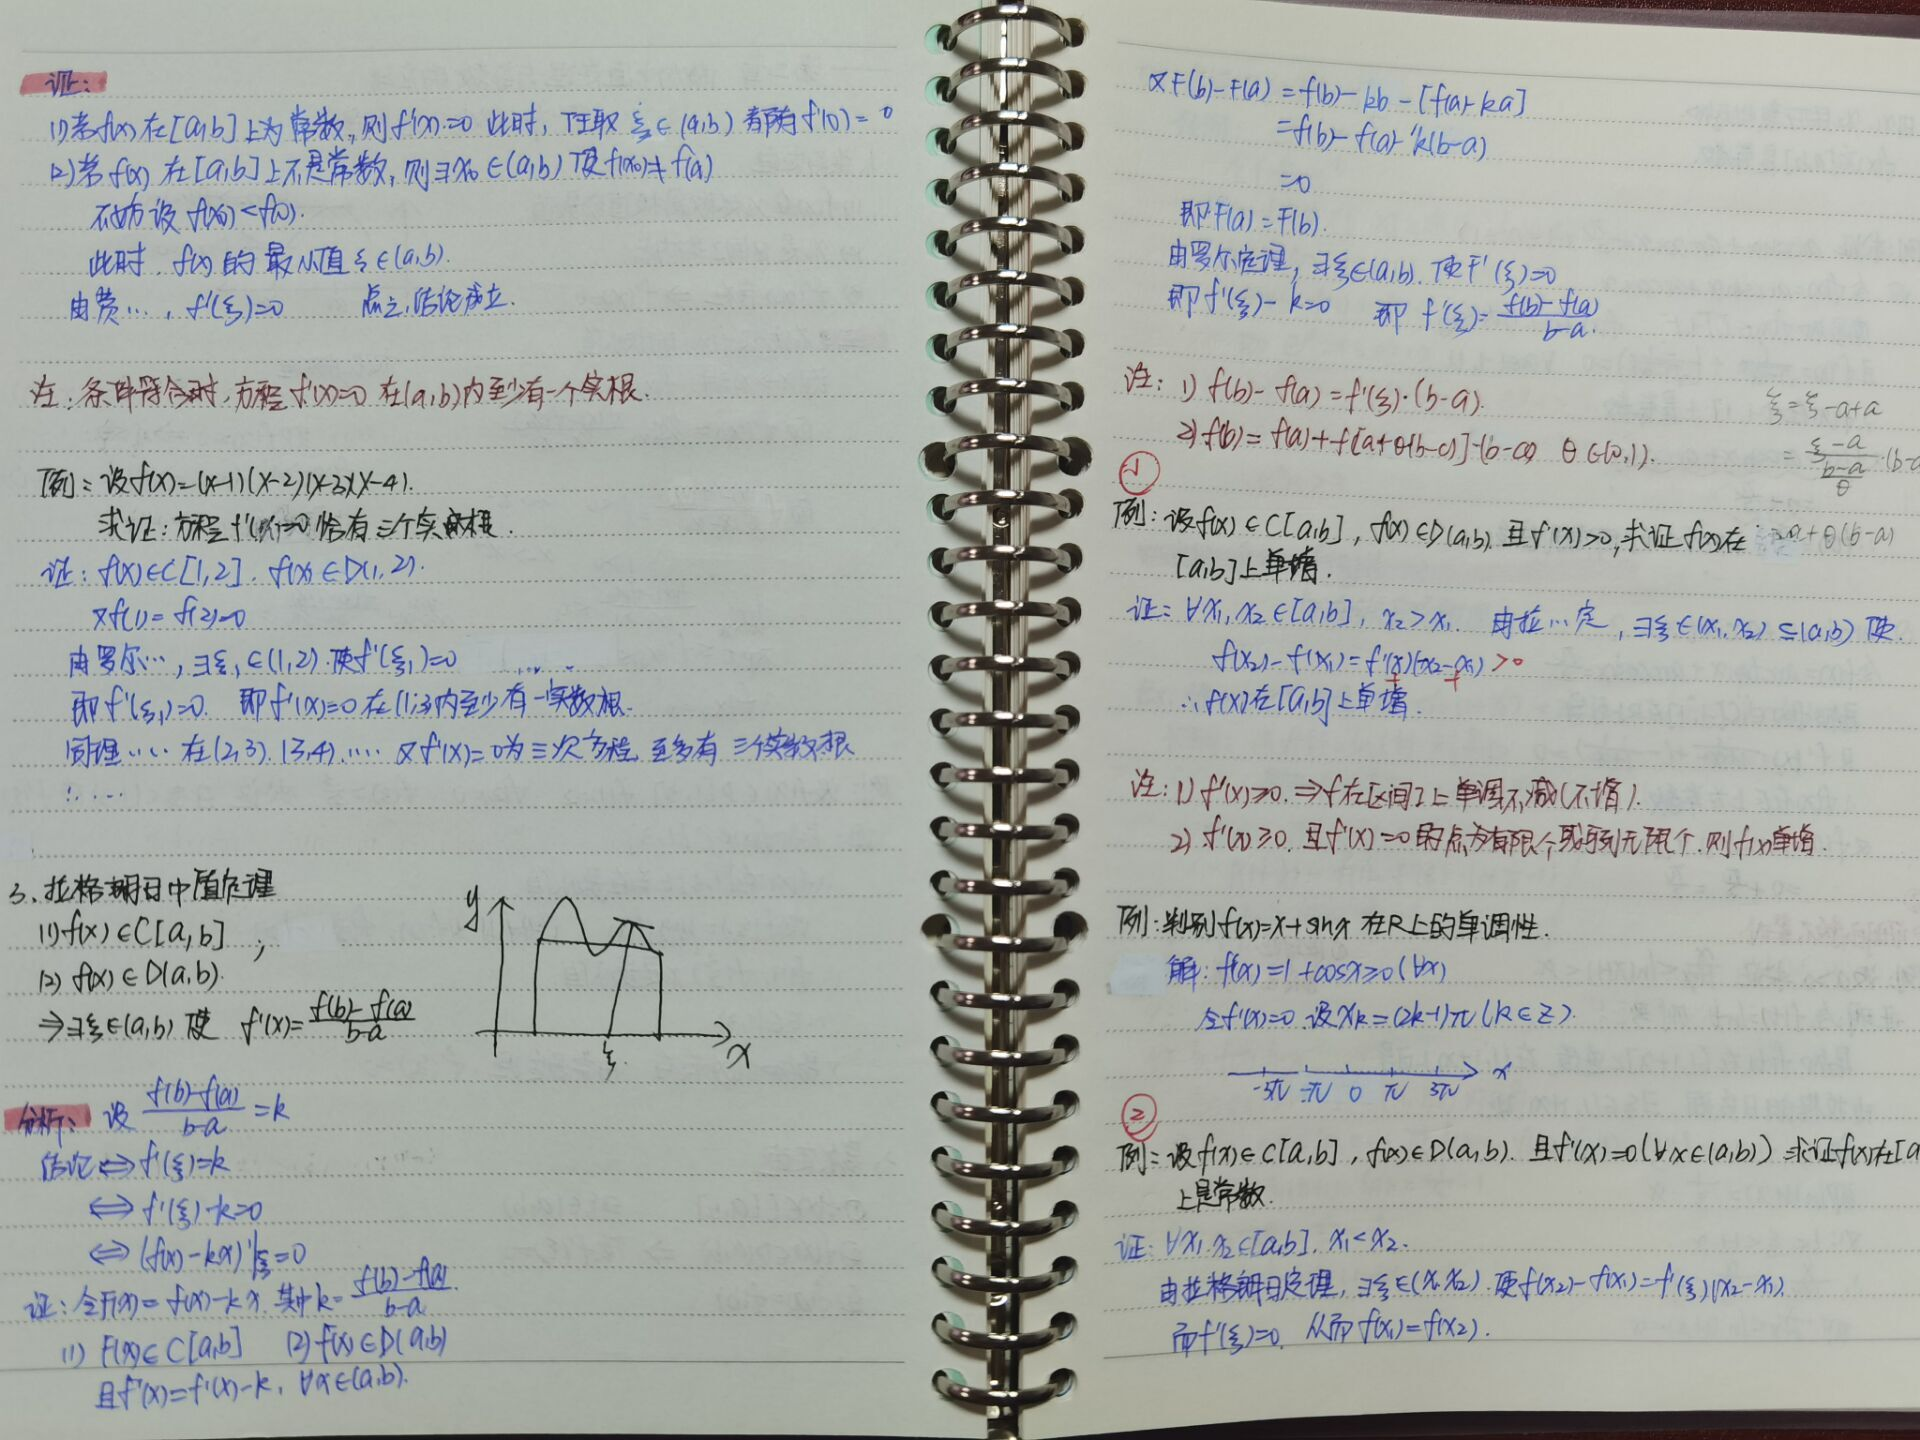 证:
(1)若f(x)在[a,b]上为常数,则f'(x)=0 此时,任取ξ∈(a,b)都有f'(0)=0
(2)若f(x)在[a,b]上不是常数,则∃x₀∈(a,b)使f(x₀)≠f(a)
不妨设f(x₀)<f(0).
此时,f(x)的最小值ξ∈(a,b).
由费…,f'(ξ)=0 总之,结论成立.
注:条件符合时,方程f'(x)=0在(a,b)内至少有一个实根.
例:设f(x)=(x-1)(x-2)(x-3)(x-4).
求证:方程f'(x)=0恰有三个实根.
证:f(x)∈C[1,2].f(x)∈D(1,2).
又f(1)=f(2)=0
由罗尔…,∃ξ₁∈(1,2)使f'(ξ₁)=0
即f'(ξ₁)=0 即f'(x)=0在(1,3)内至少有一实数根.
同理……在(2,3).(3,4).…又f'(x)=0为三次方程,至多有三个实数根
!.…
3、拉格朗日中值定理
(1)f(x)∈C[a,b];
(2)f(x)∈D(a,b).
⇒∃ξ∈(a,b)使 f'(x)=\frac{f(b)-f(a)}{b-a}
y
ξ
x
分析:设\frac{f(b)-f(a)}{b-a}=k
结论⇔f'(ξ)=k
⇔f'(ξ)-k=0
⇔(f(x)-kx)'|ξ=0
证:令F(x)=f(x)-kx.其中k=\frac{f(b)-f(a)}{b-a}
(1)F(x)∈C[a,b] (2)f(x)∈D(a,b)
且f'(x)=f'(x)-k,∀x∈(a,b).
又F(b)-F(a)=f(b)-kb-[f(a)-ka]
=f(b)-f(a)-k(b-a)
=0
即F(a)=F(b).
由罗尔定理,∃ξ∈(a,b).使F'(ξ)=0
即f'(ξ)-k=0 即f'(ξ)=\frac{f(b)-f(a)}{b-a}.
注:1)f(b)-f(a)=f'(ξ)·(b-a).
2)f(b)=f(a)+f[a+θ(b-a)]·(b-a) θ∈(0,1).
ξ=ξ-a+a
=\frac{ξ-a}{b-a}·(b-a
θ
=a+θ(b-a)
①
例:设f(x)∈C[a,b],f(x)∈D(a,b).且f'(x)>0,求证f(x)在
[a,b]上单增.
证:∀x₁,x₂∈[a,b],x₂>x₁. 由拉…定,∃ξ∈(x₁,x₂)⊆(a,b)使
f(x₂)-f(x₁)=f'(ξ)(x₂-x₁)>0
+ +
∴f(x)在[a,b]上单增.
注:1)f'(x)≥0.⇒f在区间I上单调不减(不增).
2)f'(x)≥0.且f'(x)=0的点为有限个或可列无限个.则f(x)单增.
例:判别f(x)=x+sinx在R上的单调性.
解:f'(x)=1+cosx≥0(∀x)
令f'(x)=0 设xk=(2k-1)π(k∈Z).
-3π -π 0 π 3π x
②
例:设f(x)∈C[a,b],f(x)∈D(a,b).且f'(x)=0(∀x∈(a,b))求证f(x)在[a
上是常数.
证:∀x₁.x₂∈[a,b].x₁<x₂.
由拉格朗日定理,∃ξ∈(x₁x₂).使f(x₂)-f(x₁)=f'(ξ)(x₂-x₁).
而f'(ξ)=0.从而f(x₁)=f(x₂).